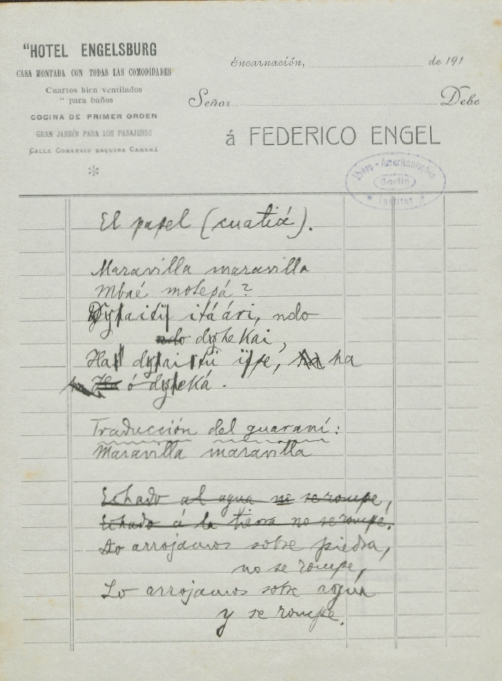 "HOTEL ENGELSBURG
CASA MONTADA CON TODAS LAS COMODIDADES
Cuartos bien ventilados
" para baños
COCINA DE PRIMER ORDEN
GRAN JARDÍN PARA LOS PASAJEROS
CALLE COMERCIO ESQUINA CABAÑÁ
Encarnación, de 191
Señor Debe
á FEDERICO ENGEL
Ibero-Amerikanisches
Berlin
Institut
El papel (cuatiá).
Maravilla maravilla
Mbaé motepá?
itáári, ndo
ndo dyhekai,
ha
ó dyheká.
Traducción del guaraní:
Maravilla maravilla
Echado al agua no se rompe,
echado á la tierra no se rompe.
Lo arrojamos sobre piedra,
no se rompe,
Lo arrojamos sobre agua
y se rompe.